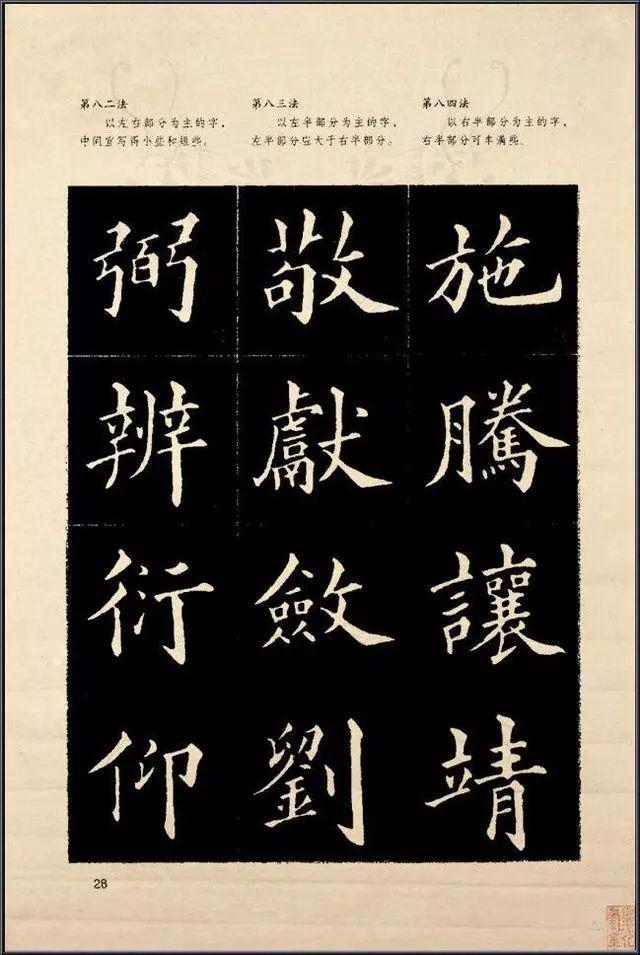 第八二法
以左右部分为主的字，
中间宜写得小些和短些。
第八三法
以左半部分为主的字，
左半部分应大于右半部分。
第八四法
以右半部分为主的字，
右半部分可丰满些。
弼 敬 施
辨 獻 騰
衍 斂 讓
仰 劉 靖
28